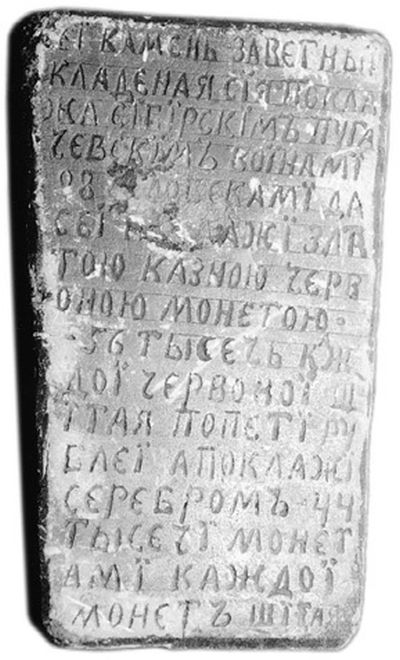 СЕІ КАМЕНЬ ЗАВЕТНЫЙ
КЛАДЕНАЯ СІЯ ПОКЛА
ЖА СІГІРСКІМЪ ПУГА
ЧЕВСКІМЪ ВОІНАМІ
98 ЧЛОВЕКАМЇ ДА
СЕЇ АЖЇ ЗЛА
ТОЮ КАЗНОЮ ЧЕРВ
ОНОЮ МОНЕТОЮ·
-56 ТЫСЕЧЬ КАЖ
ДОЇ ЧЕРВОНОЇ Щ
ТТАЯ ПОПЕТЇ РУ
БЛЕЇ АПОКЛАЖІ
СЕРЕБРОМЪ 44
ТЫСЕЧЇ МОНЕТ
АМЇ КАЖДОЇ
МОНЕТЪ ШІТАЯ